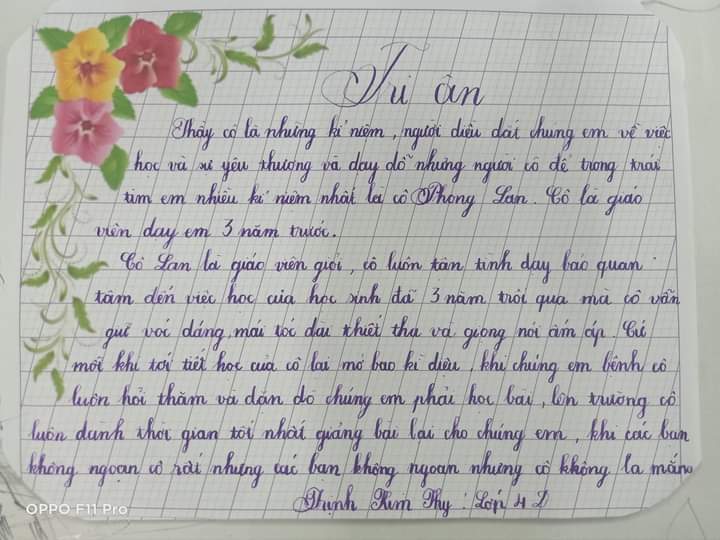 Tri ân
Thầy cô là những kỉ niệm, người diều dắt chúng em về việc
học và sự yêu thương và dạy dỗ nhưng người cô để trong trái
tim em nhiều kỉ niệm nhất là cô Phong Lan. Cô là giáo
viên dạy em 3 năm trước.
Cô Lan là giáo viên giỏi, cô luôn tân tình dạy bảo quan
tâm đến việc học của học sinh đã 3 năm trôi qua mà cô vẫn
guĩ vóc dáng, mái tóc dài thiết tha và giọng nói ấm áp. Cứ
mỗi khi tới tiết học của cô lại mở bao kì diệu, khi chúng em bệnh cô
luôn hỏi thăm và dặn dò chúng em phải học bài, lên trường cô
luôn dành thời gian tốt nhất giảng bài lại cho chúng em, khi các bạn
không ngoan cô rất nhưng các bạn không ngoan nhưng cô không la mắng
Thịnh Kim Thy : Lớp 4 D
OPPO F11 Pro